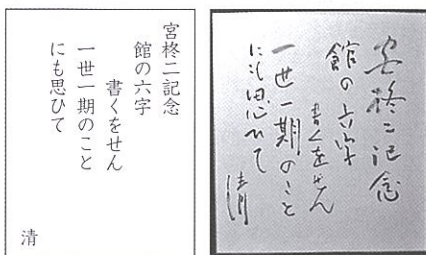 宮柊二記念
館の六字
書くをせん
一世一期のこと
にも思ひて
清
宮柊二記念
館の六字
書くをせん
一世一期のこと
にも思ひて
清